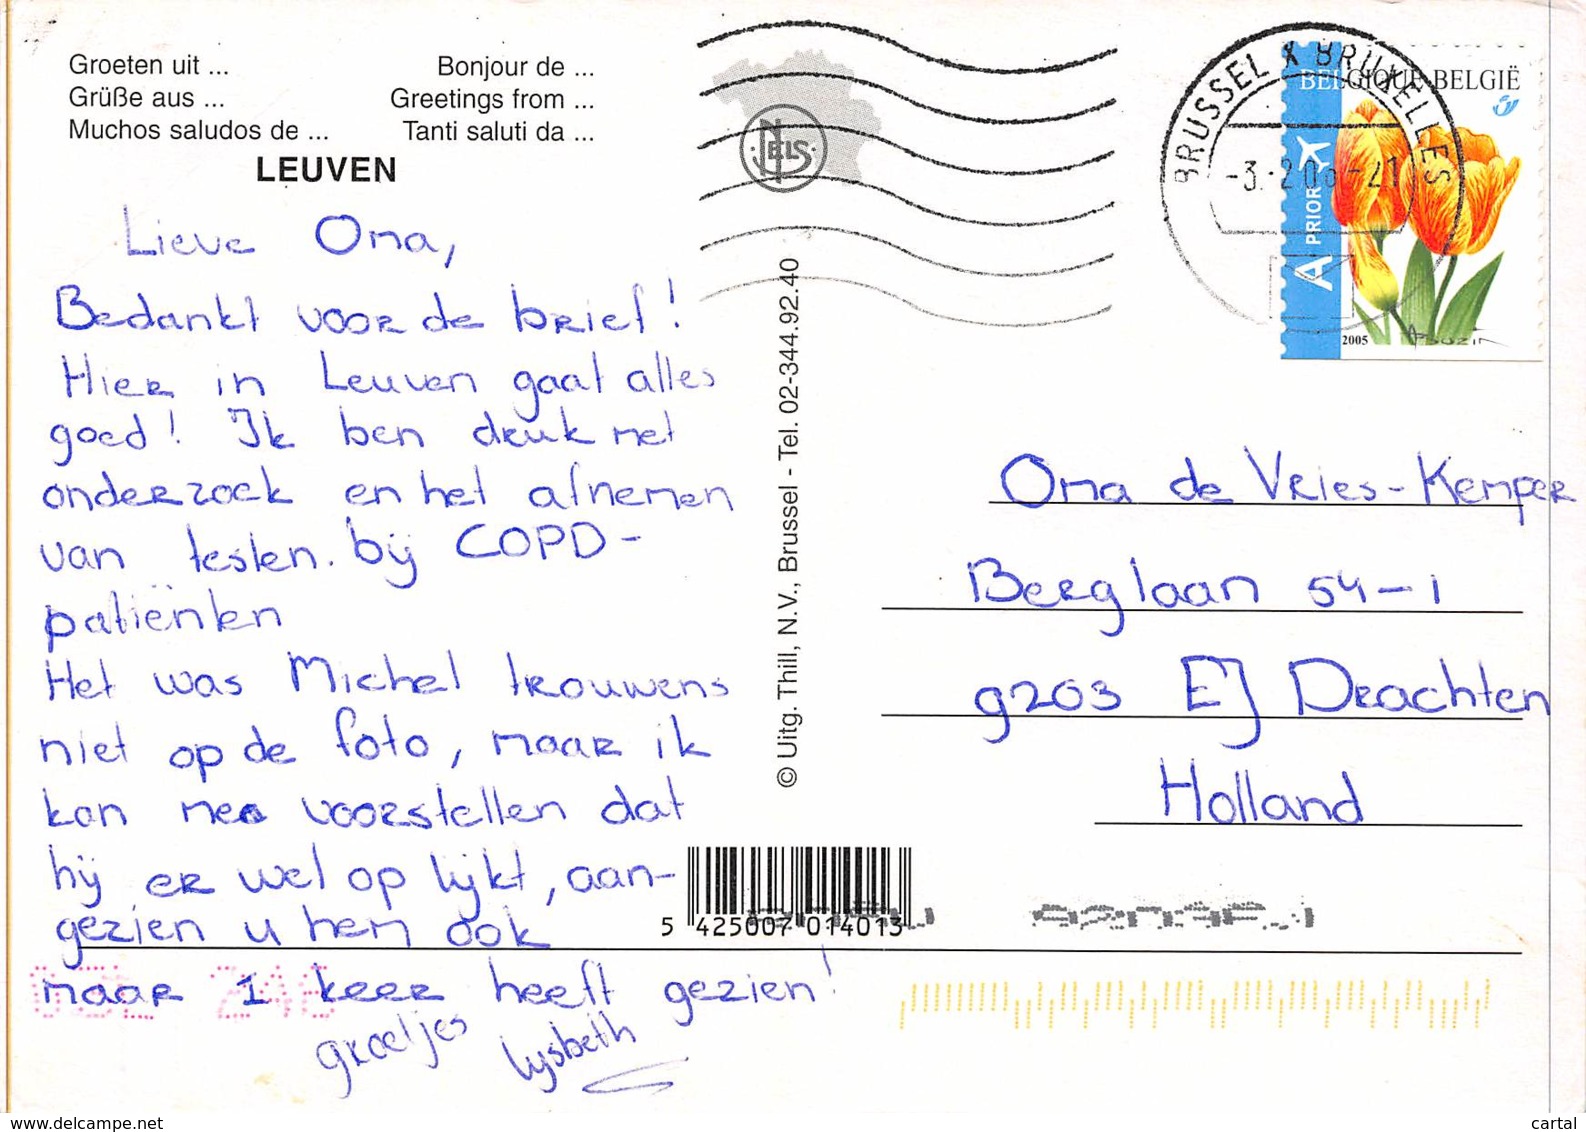 Groeten uit ...
Grüße aus ...
Muchos saludos de ...
Bonjour de ...
Greetings from ...
Tanti saluti da ...
LEUVEN
NELS
BRUSSEL X BRUXELLES
BELGIQUE-BELGIË
A PRIOR
2005
Lieve Oma,
Bedankt voor de brief!
Hier in Leuven gaat alles
goed! Ik ben druk met
onderzoek en het afnemen
van testen. bij COPD-
patiënten
Het was Michel trouwens
niet op de foto, maar ik
kan me voorstellen dat
hij er wel op lijkt, aan-
gezien u hem ook
maar 1 keer heeft gezien!
groetjes
Lysbeth
© Uitg. Thill, N.V., Brussel - Tel. 02-344.92.40
Oma de Vries-Kemper
Berglaan 54-1
9203 EJ Drachten
Holland
5 425007 014013
www.delcampe.net
cartal